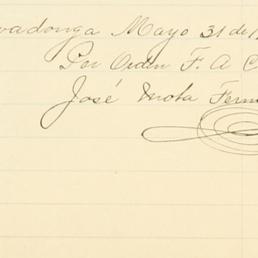 vadonga Mayo 31 de 1
Por Orden F. A C
José Mota Fern